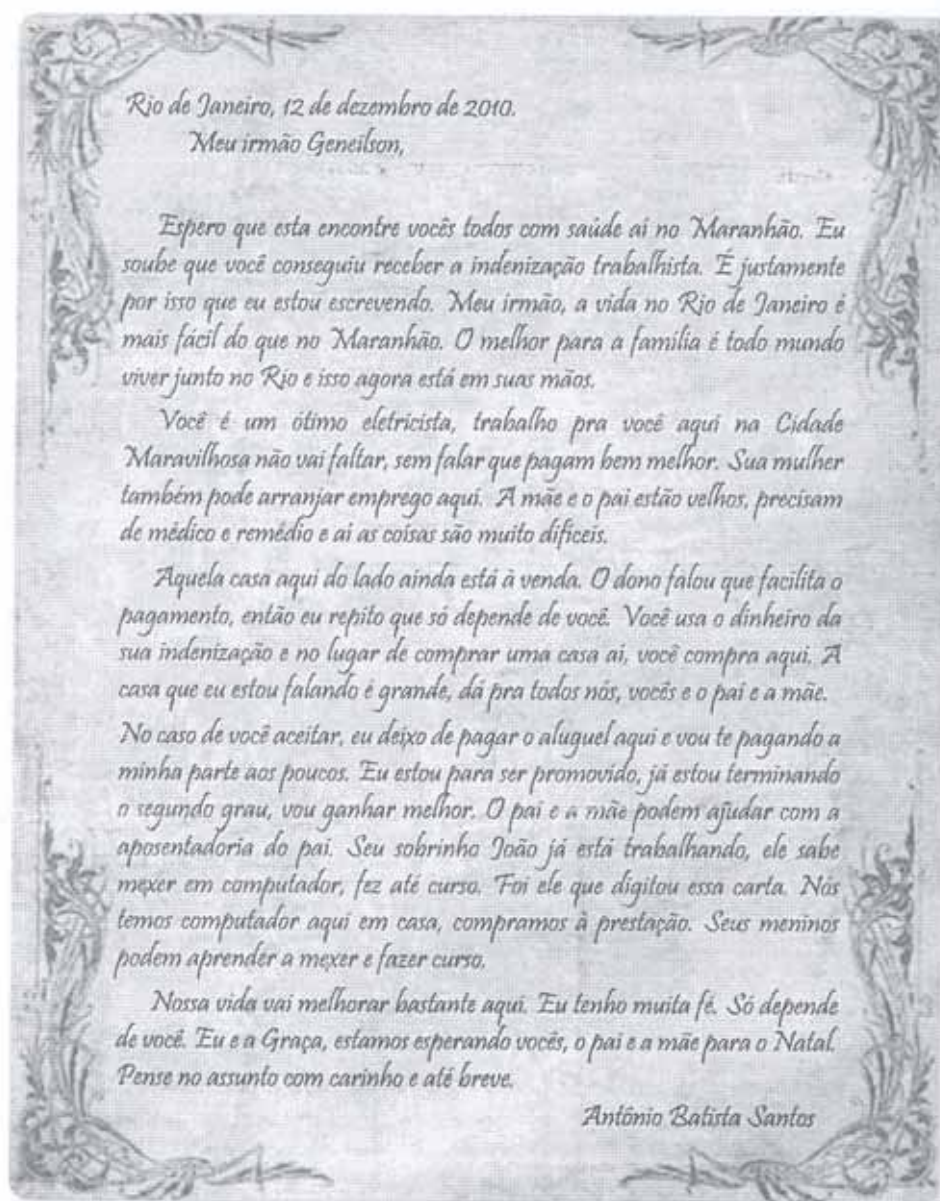 Rio de Janeiro, 12 de dezembro de 2010.
Meu irmão Geneilson,
Espero que esta encontre vocês todos com saúde aí no Maranhão. Eu
soube que você conseguiu receber a indenização trabalhista. É justamente
por isso que eu estou escrevendo. Meu irmão, a vida no Rio de Janeiro é
mais fácil do que no Maranhão. O melhor para a família é todo mundo
viver junto no Rio e isso agora está em suas mãos.
Você é um ótimo eletricista, trabalho pra você aqui na Cidade
Maravilhosa não vai faltar, sem falar que pagam bem melhor. Sua mulher
também pode arranjar emprego aqui. A mãe e o pai estão velhos, precisam
de médico e remédio e aí as coisas são muito difíceis.
Aquela casa aqui do lado ainda está à venda. O dono falou que facilita o
pagamento, então eu repito que só depende de você. Você usa o dinheiro da
sua indenização e no lugar de comprar uma casa aí, você compra aqui. A
casa que eu estou falando é grande, dá pra todos nós, vocês e o pai e a mãe.
No caso de você aceitar, eu deixo de pagar o aluguel aqui e vou te pagando a
minha parte aos poucos. Eu estou para ser promovido, já estou terminando
o segundo grau, vou ganhar melhor. O pai e a mãe podem ajudar com a
aposentadoria do pai. Seu sobrinho João já está trabalhando, ele sabe
mexer em computador, fez até curso. Foi ele que digitou essa carta. Nós
temos computador aqui em casa, compramos à prestação. Seus meninos
podem aprender a mexer e fazer curso.
Nossa vida vai melhorar bastante aqui. Eu tenho muita fé. Só depende
de você. Eu e a Graça, estamos esperando vocês, o pai e a mãe para o Natal.
Pense no assunto com carinho e até breve.
Antônio Batista Santos